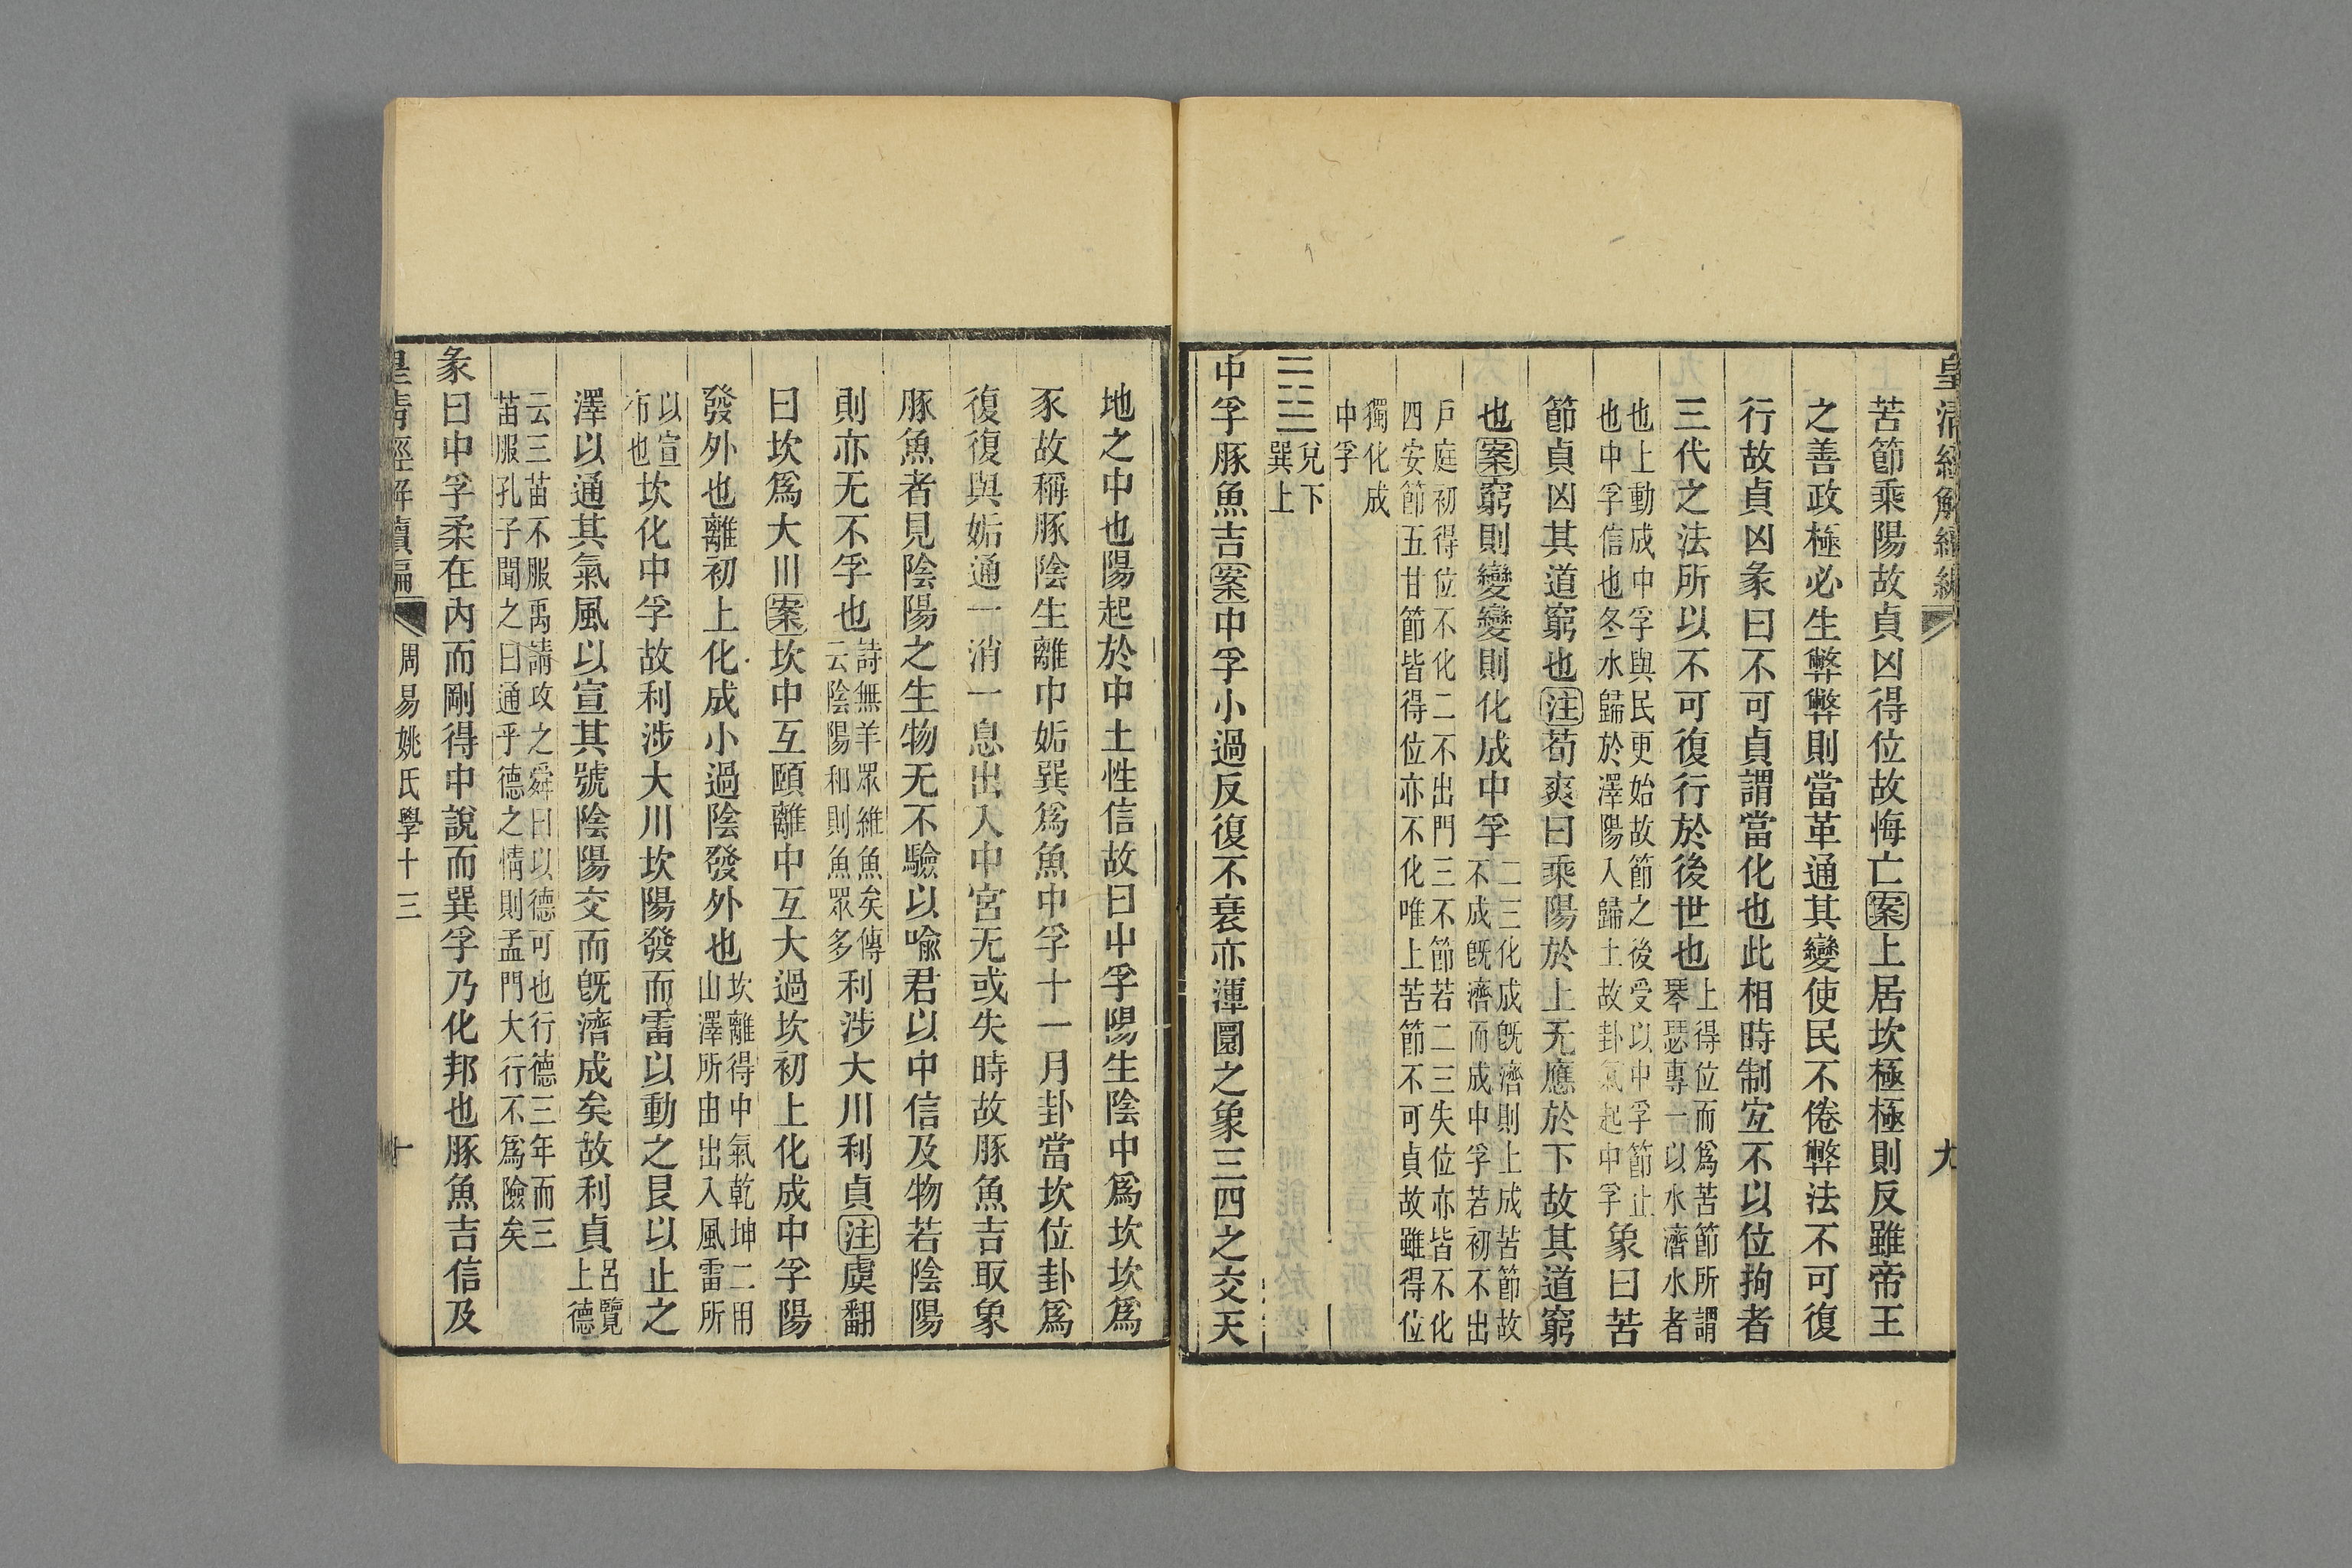 皇清經解續編 九
苦節乘陽故貞凶得位故悔亡案上居坎極極則反雖帝王
之善政極必生弊弊則當革通其變使民不倦弊法不可復
行故貞凶彖曰不可貞謂當化也此相時制宐不以位拘者
三代之法所以不可復行於後世也上得位而爲苦節所謂琴瑟專一以水濟水者
也上動成中孚與民更始故節之後受以中孚節止也中孚信也冬水歸於澤陽入歸土故卦氣起中孚象曰苦
節貞凶其道窮也注荀爽曰乘陽於上无應於下故其道窮
也案窮則變變則化成中孚二三化成旣濟則上成苦節故不成旣濟而成中孚若初不出
戶庭初得位不化二不出門三不節若二三失位亦皆不化四安節五甘節皆得位亦不化唯上苦節不可貞故雖得位
獨化成中孚
兌下巽上
中孚豚魚吉案中孚小過反復不衰亦渾圜之象三四之交天
地之中也陽起於中土性信故曰中孚陽生陰中爲坎坎爲
豕故稱豚陰生離中姤巽爲魚中孚十一月卦當坎位卦爲
復復與姤通一消一息出入中宮无或失時故豚魚吉取象
豚魚者見陰陽之生物无不驗以喩君以中信及物若陰陽
則亦无不孚也詩無羊眾維魚矣傳云陰陽和則魚眾多利涉大川利貞注虞翻
曰坎爲大川案坎中互頤離中互大過坎初上化成中孚陽
發外也離初上化成小過陰發外也坎離得中氣乾坤二用山澤所由出入風雷所
以宣布也坎化中孚故利涉大川坎陽發而雷以動之艮以止之
澤以通其氣風以宣其號陰陽交而旣濟成矣故利貞呂覽上德
云三苗不服禹請攻之舜曰以德可也行德三年而三苗服孔子聞之曰通乎德之情則孟門大行不爲險矣
彖曰中孚柔在內而剛得中說而巽孚乃化邦也豚魚吉信及
皇清經解續編 周易姚氏學十三 十